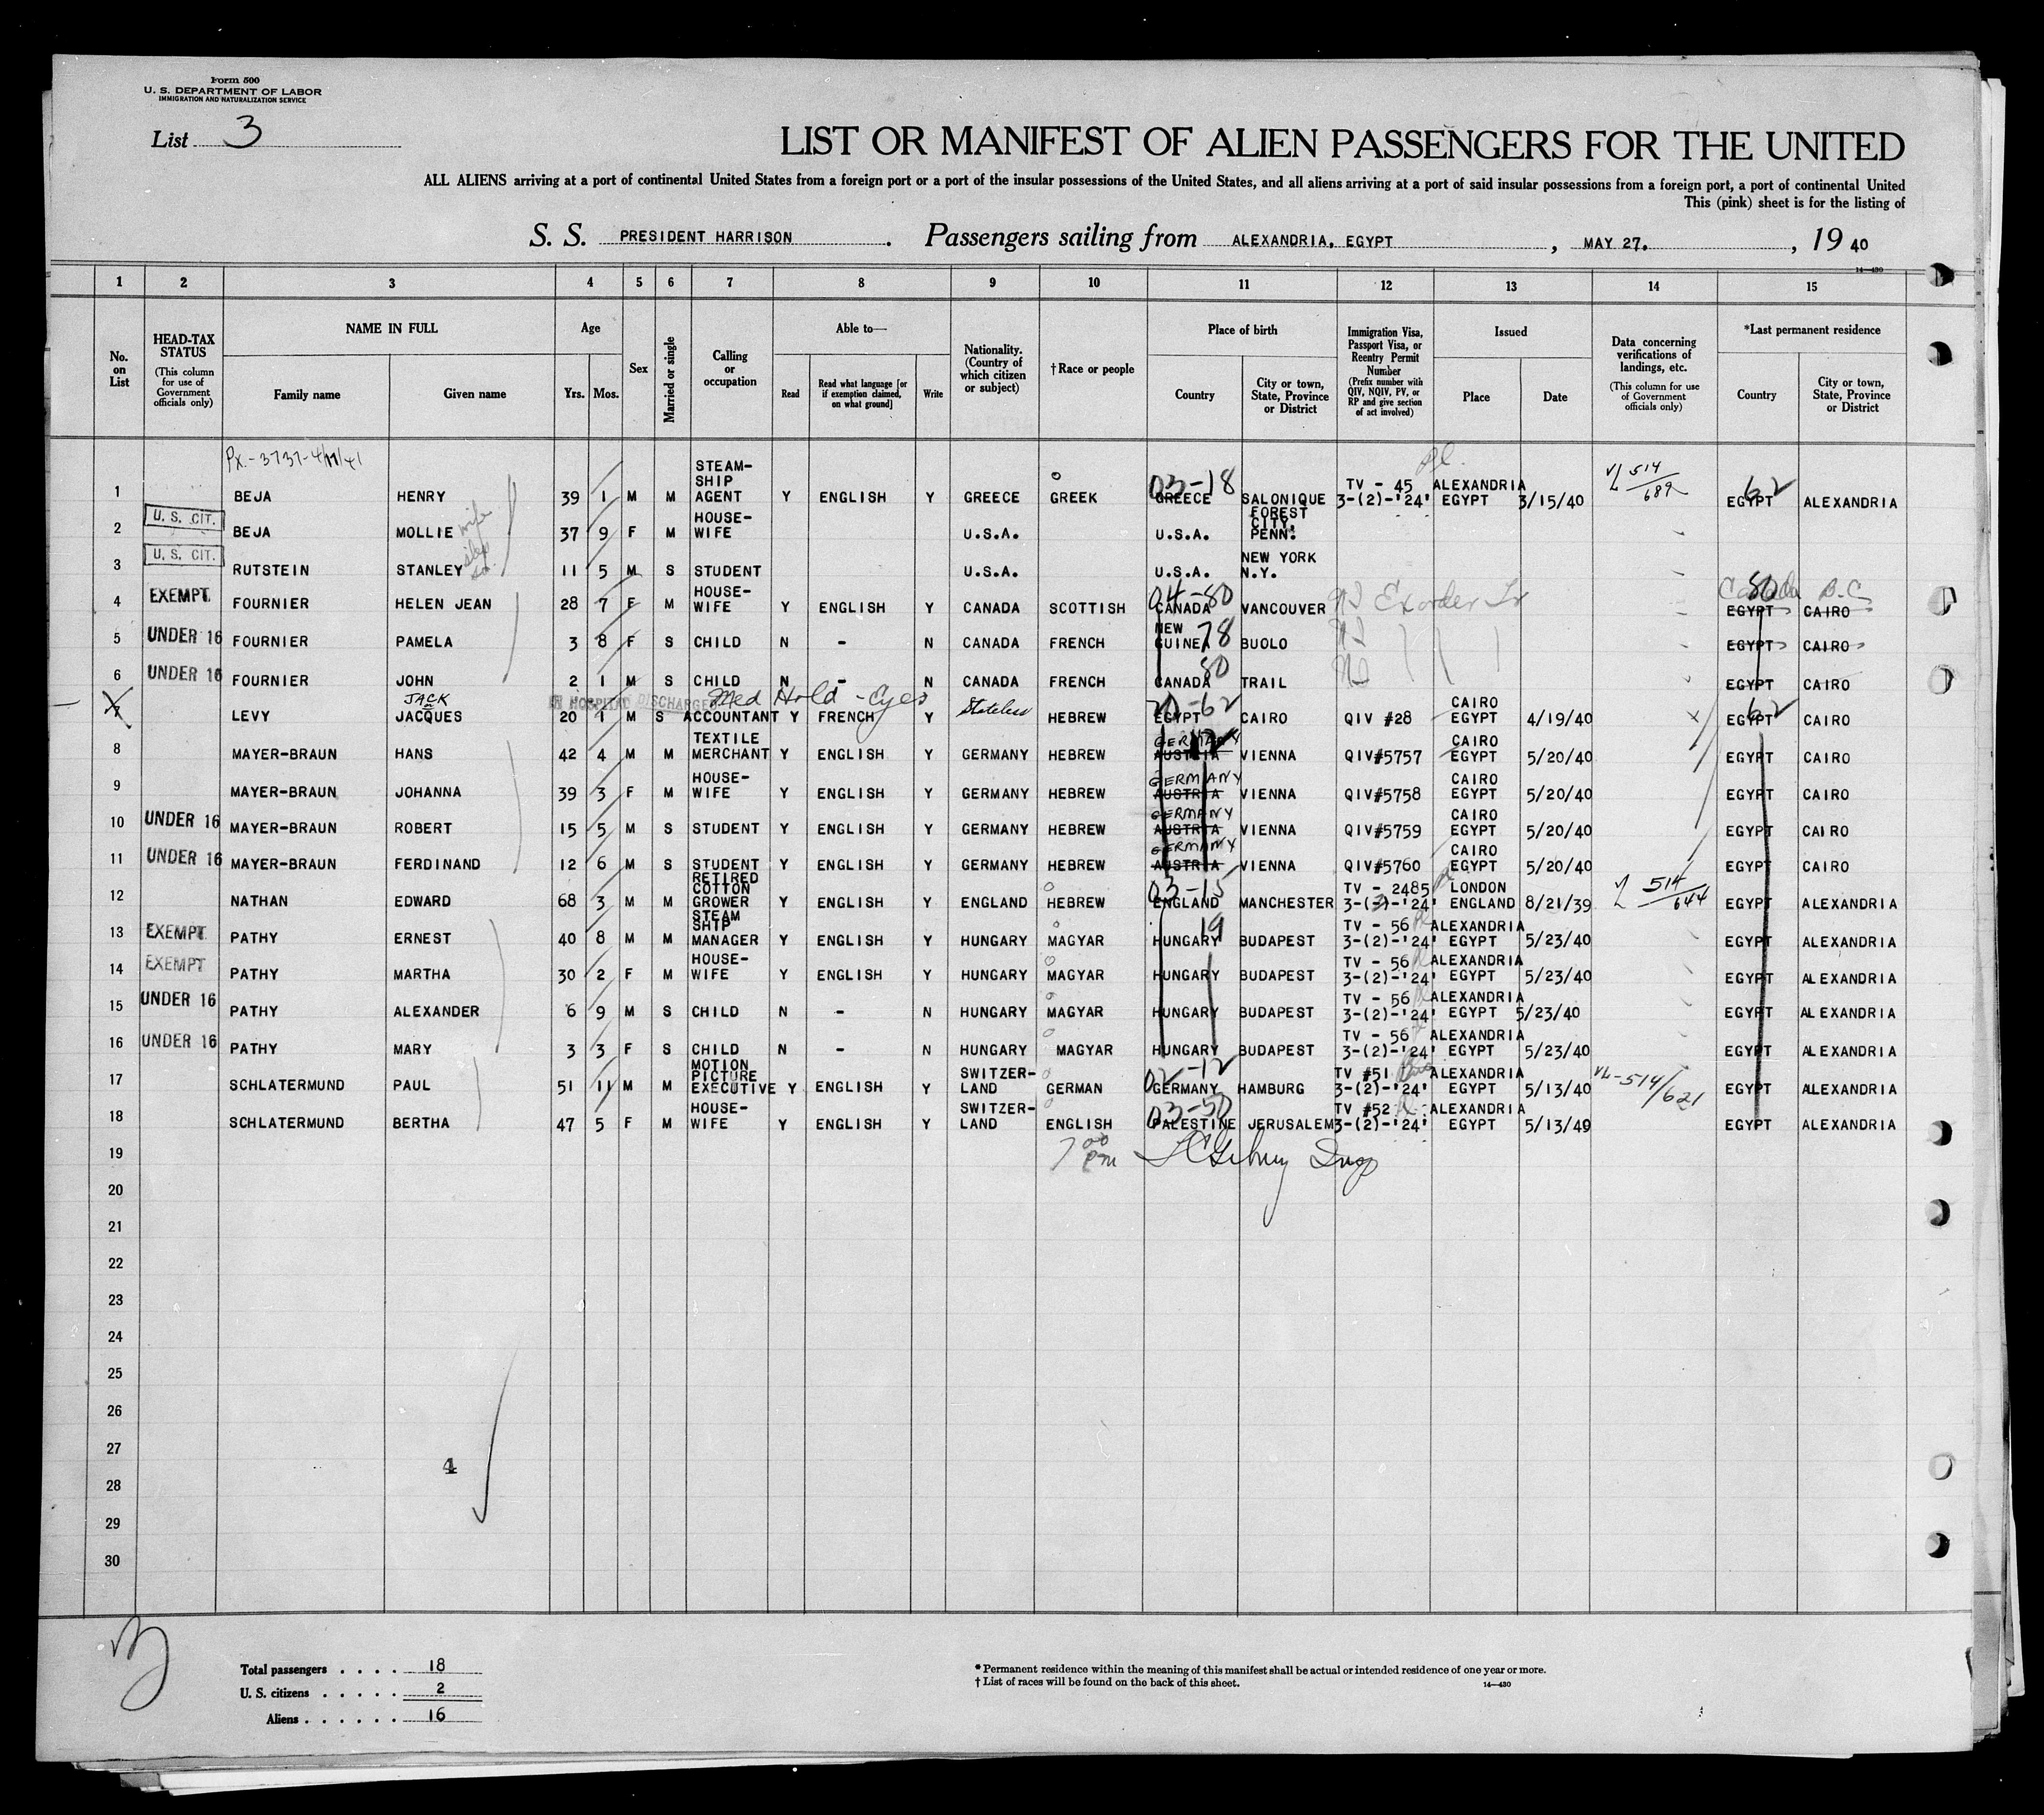 Form 500
U. S. DEPARTMENT OF LABOR
IMMIGRATION AND NATURALIZATION SERVICE
List 3
LIST OR MANIFEST OF ALIEN PASSENGERS FOR THE UNITED
ALL ALIENS arriving at a port of continental United States from a foreign port or a port of the insular possessions of the United States, and all aliens arriving at a port of said insular possessions from a foreign port, a port of continental United
This (pink) sheet is for the listing of
S. S. PRESIDENT HARRISON. Passengers sailing from ALEXANDRIA, EGYPT, MAY 27., 19 40
14—430
1 2 3 4 5 6 7 8 9 10 11 12 13 14 15
No. on List
HEAD-TAX STATUS (This column for use of Government officials only)
NAME IN FULL Family name Given name
Age Yrs. Mos.
Sex
Married or single
Calling or occupation
Able to— Read Read what language [or if exemption claimed, on what ground] Write
Nationality. (Country of which citizen or subject)
†Race or people
Place of birth Country City or town, State, Province or District
Immigration Visa, Passport Visa, or Reentry Permit Number (Prefix number with QIV, NQIV, PV, or RP and give section of act involved)
Issued Place Date
Data concerning verifications of landings, etc. (This column for use of Government officials only)
*Last permanent residence Country City or town, State, Province or District
Px.-3737-4/17/41
1 BEJA HENRY 39 1 M M STEAM-SHIP AGENT Y ENGLISH Y GREECE GREEK 03-18 GREECE SALONIQUE TV - 45 3-(2)-'24' ALEXANDRIA EGYPT 3/15/40 514/689 62 EGYPT ALEXANDRIA
2 U. S. CIT. BEJA MOLLIE wife 37 9 F M HOUSE-WIFE U.S.A. U.S.A. FOREST CITY, PENN.
3 U. S. CIT. RUTSTEIN STANLEY step so. 11 5 M S STUDENT U.S.A. U.S.A. NEW YORK N.Y.
4 EXEMPT FOURNIER HELEN JEAN 28 7 F M HOUSE-WIFE Y ENGLISH Y CANADA SCOTTISH 04-80 CANADA VANCOUVER Canada 80 B.C. EGYPT CAIRO
5 UNDER 16 FOURNIER PAMELA 3 8 F S CHILD N - N CANADA FRENCH NEW GUINEA 78 BUOLO EGYPT CAIRO
6 UNDER 16 FOURNIER JOHN 2 1 M S CHILD N - N CANADA FRENCH 80 CANADA TRAIL EGYPT CAIRO
HOSPITAL DISCHARGED Med Hold - Eyes
7 LEVY JACK JACQUES 20 1 M S ACCOUNTANT Y FRENCH Y Stateless HEBREW 20-62 EGYPT CAIRO QIV #28 CAIRO EGYPT 4/19/40 X 62 EGYPT CAIRO
8 MAYER-BRAUN HANS 42 4 M M TEXTILE MERCHANT Y ENGLISH Y GERMANY HEBREW GERMANY AUSTRIA 12 VIENNA QIV#5757 CAIRO EGYPT 5/20/40 EGYPT CAIRO
9 MAYER-BRAUN JOHANNA 39 3 F M HOUSE-WIFE Y ENGLISH Y GERMANY HEBREW GERMANY AUSTRIA VIENNA QIV#5758 CAIRO EGYPT 5/20/40 EGYPT CAIRO
10 UNDER 16 MAYER-BRAUN ROBERT 15 5 M S STUDENT Y ENGLISH Y GERMANY HEBREW GERMANY AUSTRIA VIENNA QIV#5759 CAIRO EGYPT 5/20/40 EGYPT CAIRO
11 UNDER 16 MAYER-BRAUN FERDINAND 12 6 M S STUDENT Y ENGLISH Y GERMANY HEBREW GERMANY AUSTRIA VIENNA QIV#5760 CAIRO EGYPT 5/20/40 EGYPT CAIRO
12 NATHAN EDWARD 68 3 M M RETIRED COTTON GROWER Y ENGLISH Y ENGLAND HEBREW 03-15 ENGLAND MANCHESTER TV - 2485 3-(2)-'24' LONDON ENGLAND 8/21/39 514/644 EGYPT ALEXANDRIA
13 EXEMPT PATHY ERNEST 40 8 M M STEAM SHIP MANAGER Y ENGLISH Y HUNGARY MAGYAR 19 HUNGARY BUDAPEST TV - 56 3-(2)-'24' ALEXANDRIA EGYPT 5/23/40 EGYPT ALEXANDRIA
14 EXEMPT PATHY MARTHA 30 2 F M HOUSE-WIFE Y ENGLISH Y HUNGARY MAGYAR HUNGARY BUDAPEST TV - 56 3-(2)-'24' ALEXANDRIA EGYPT 5/23/40 EGYPT ALEXANDRIA
15 UNDER 16 PATHY ALEXANDER 6 9 M S CHILD N - N HUNGARY MAGYAR HUNGARY BUDAPEST TV - 56 3-(2)-'24' ALEXANDRIA EGYPT 5/23/40 EGYPT ALEXANDRIA
16 UNDER 16 PATHY MARY 3 3 F S CHILD N - N HUNGARY MAGYAR HUNGARY BUDAPEST TV - 56 3-(2)-'24' ALEXANDRIA EGYPT 5/23/40 EGYPT ALEXANDRIA
17 SCHLATERMUND PAUL 51 11 M M MOTION PICTURE EXECUTIVE Y ENGLISH Y SWITZER-LAND GERMAN 02-12 GERMANY HAMBURG TV #51 3-(2)-'24' ALEXANDRIA EGYPT 5/13/40 VL-514/621 EGYPT ALEXANDRIA
18 SCHLATERMUND BERTHA 47 5 F M HOUSE-WIFE Y ENGLISH Y SWITZER-LAND ENGLISH 03-50 PALESTINE JERUSALEM TV #52 3-(2)-'24' ALEXANDRIA EGYPT 5/13/40 EGYPT ALEXANDRIA
19 7 00 pm
20
21
22
23
24
25
26
27
4
28
29
30
3
Total passengers . . . . 18
U. S. citizens . . . . . 2
Aliens . . . . . . 16
* Permanent residence within the meaning of this manifest shall be actual or intended residence of one year or more.
† List of races will be found on the back of this sheet.
14—430